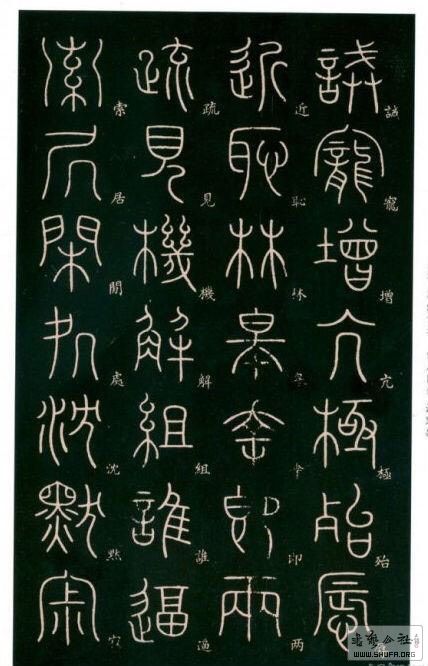 誡寵增亢極殆辱
近恥林皋幸即兩
疏見機解組誰逼
索居閒處沈默寂
书法公社
WWW.SHUFA.ORG